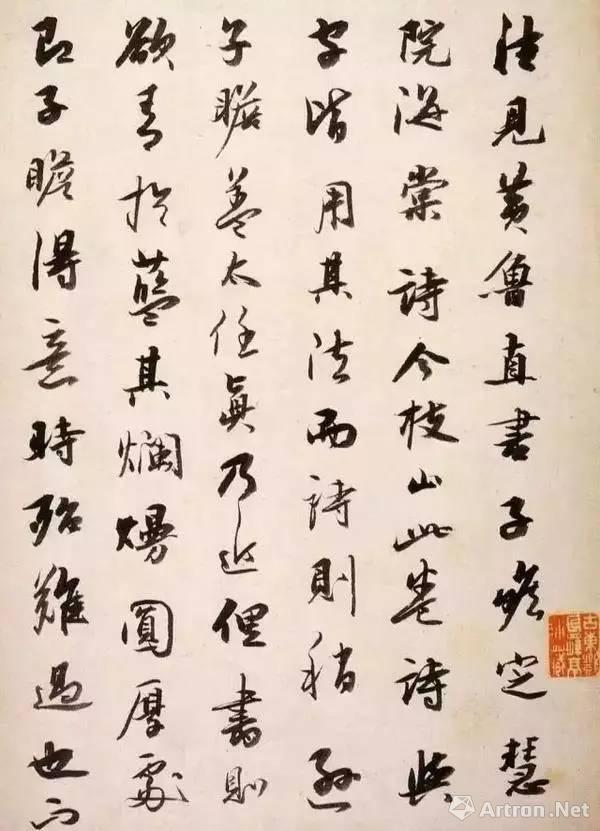 往見黃魯直書子瞻定慧
院海棠詩今枝山此卷詩與
字皆用其法而詩則稍遜
子瞻蓋太任眞乃近俚書則
欲青於藍其爛熳圓厚處
即子瞻得意時殆難過也
Artron.Net